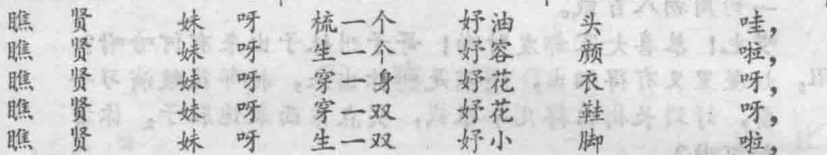 瞧贤妹呀梳一个好油头哇,
瞧贤妹呀生一个好容颜啦,
瞧贤妹呀穿一身好花衣呀,
瞧贤妹呀穿一双好花鞋呀,
瞧贤妹呀生一双好小脚啦,